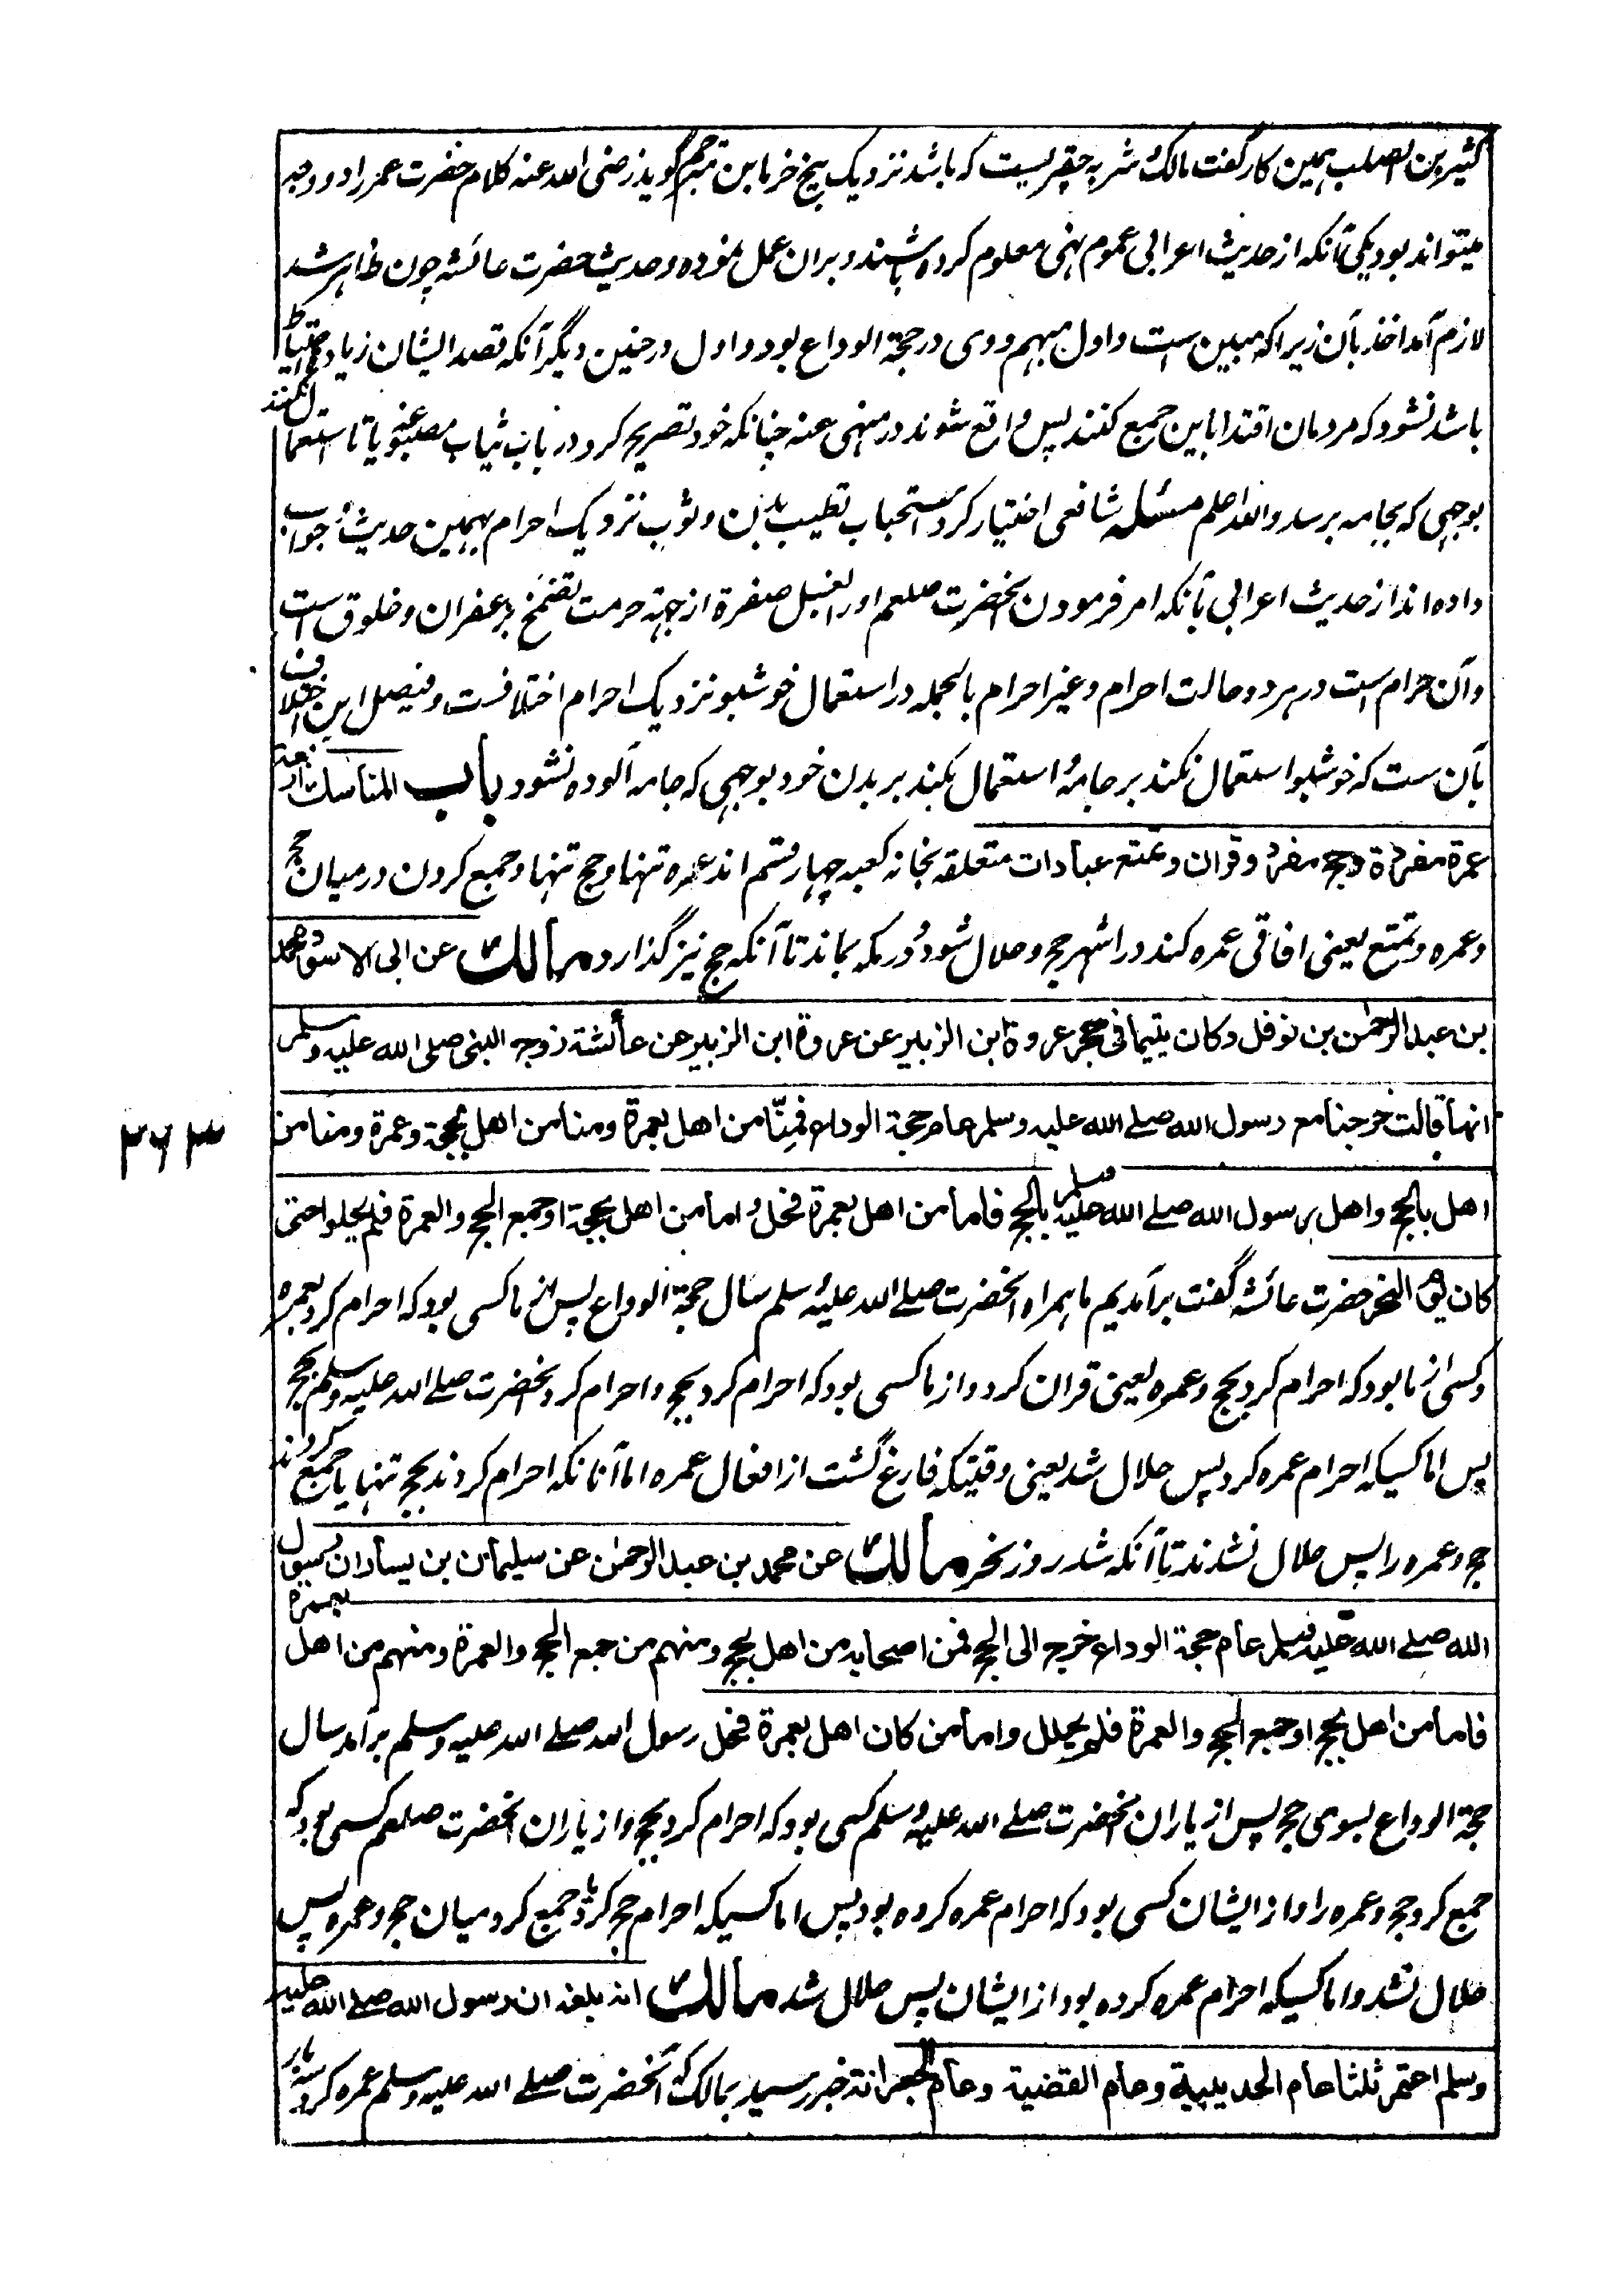 کثیر بن الصلب همین کار گفت مالک شربه حقیریست که باشد نزدیک بیخ خرما بن مترجم گوید رضی الله عنه کلام حضرت عمر را دو وجه
میتواند بود یکی آنکه از حدیث اعرابی عموم نهی معلوم کرده باشند و بران عمل نموده و حدیث حضرت عائشه چون ظاهر شد
لازم آمد اخذ بآن زیرا که مبین است و اول مبهم و وی در حجة الوداع بود و اول در حنین دیگر آنکه قصد ایشان زیادة احتیاط
باشد نشود که مردمان اقتدا باین جمیع کنند پس واقع شوند در منهی عنه چنانکه خود تصریح کرد در باب ثیاب مصبوغه یا تا استعمال نکنند
بوجهی که بجامه برسد والله اعلم مسئله شافعی اختیار کرد استحباب تطییب بدن و ثوب نزدیک احرام بهمین حدیث و جواب
داده اند از حدیث اعرابی بآنکه امر فرمودن آنحضرت صلعم او را بغسل صفرة از جهة حرمت تضمخ بزعفران و خلوق است
و آن حرام است در هر دو حالت احرام و غیر احرام بالجمله در استعمال خوشبو نزدیک احرام اختلافست و فیصل این اختلاف
بآن ست که خوشبو استعمال نکند بر جامه و استعمال بکند بر بدن خود بوجهی که جامه آلوده نشود باب المناسک اربعة
عمرة مفردة وحج مفرد وقران وتمتع عبادات متعلقه بخانه کعبه چهار قسم اند عمره تنها و حج تنها و جمع کردن درمیان حج
و عمره و تمتع یعنی افاقی عمره کند در اشهر حج و حلال شود و در مکه بماند تا آنکه حج نیز گذارد مالک عن ابی الاسود محمد
بن عبد الرحمن بن نوفل وکان یتیما فی حجر عروة بن الزبیر عن عروة ابن الزبیر عن عائشة زوجه النبی صلی الله علیه وسلم
انها قالت خرجنا مع رسول الله صلے الله علیه وسلم عام حجة الوداع فمنّا من اهل بعمرة ومنا من اهل بحجة وعمرة ومنا من
اهل بالحج واهل رسول الله صلے الله علیه وسلم بالحج فاما من اهل بعمرة فحل واما من اهل بحجة او جمع الحج والعمرة فلم یحلوا حتی
کان یوم النحر حضرت عائشه گفت برآمدیم ما همراه آنحضرت صلے الله علیه وسلم سال حجة الوداع پس از ما کسی بود که احرام کرد بعمره
و کسی از ما بود که احرام کرد بحج و عمره یعنی قران کرد و از ما کسی بود که احرام کرد بحج و احرام کرد آنحضرت صلے الله علیه وسلم بحج
پس اما کسیکه احرام عمره کرد پس حلال شد یعنی وقتیکه فارغ گشت از افعال عمره اما آنانکه احرام کردند بحج تنها یا جمع کردند
حج و عمره را پس حلال نشدند تا آنکه شد روز نحر مالک عن محمد بن عبد الرحمن عن سلیمان بن یسار ان رسول
الله صلے الله علیه وسلم عام حجة الوداع خرج الی الحج فمن اصحابه من اهل بحج ومنهم من جمع الحج والعمرة ومنهم من اهل بعمرة
فاما من اهل بحج او جمع الحج والعمرة فلم یحلل واما من کان اهل بعمرة فحل رسول الله صلے الله علیه وسلم برآمد سال
حجة الوداع بسوی حج پس از یاران آنحضرت صلے الله علیه وسلم کسی بود که احرام کرد بحج و از یاران آنحضرت صلعم کسی بود که
جمع کرد حج و عمره را و از ایشان کسی بود که احرام عمره کرده بود پس اما کسیکه احرام حج کرد یا جمع کرد میان حج و عمره پس
حلال نشد و اما کسیکه احرام عمره کرده بود از ایشان پس حلال شد مالک انه بلغه ان رسول الله صلے الله علیه
وسلم اعتمر ثلثا عام الحدیبیة وعام القضیة وعام الجعرانة خبر رسید بمالک که آنحضرت صلے الله علیه وسلم عمره کرد سه بار
۲۶۳